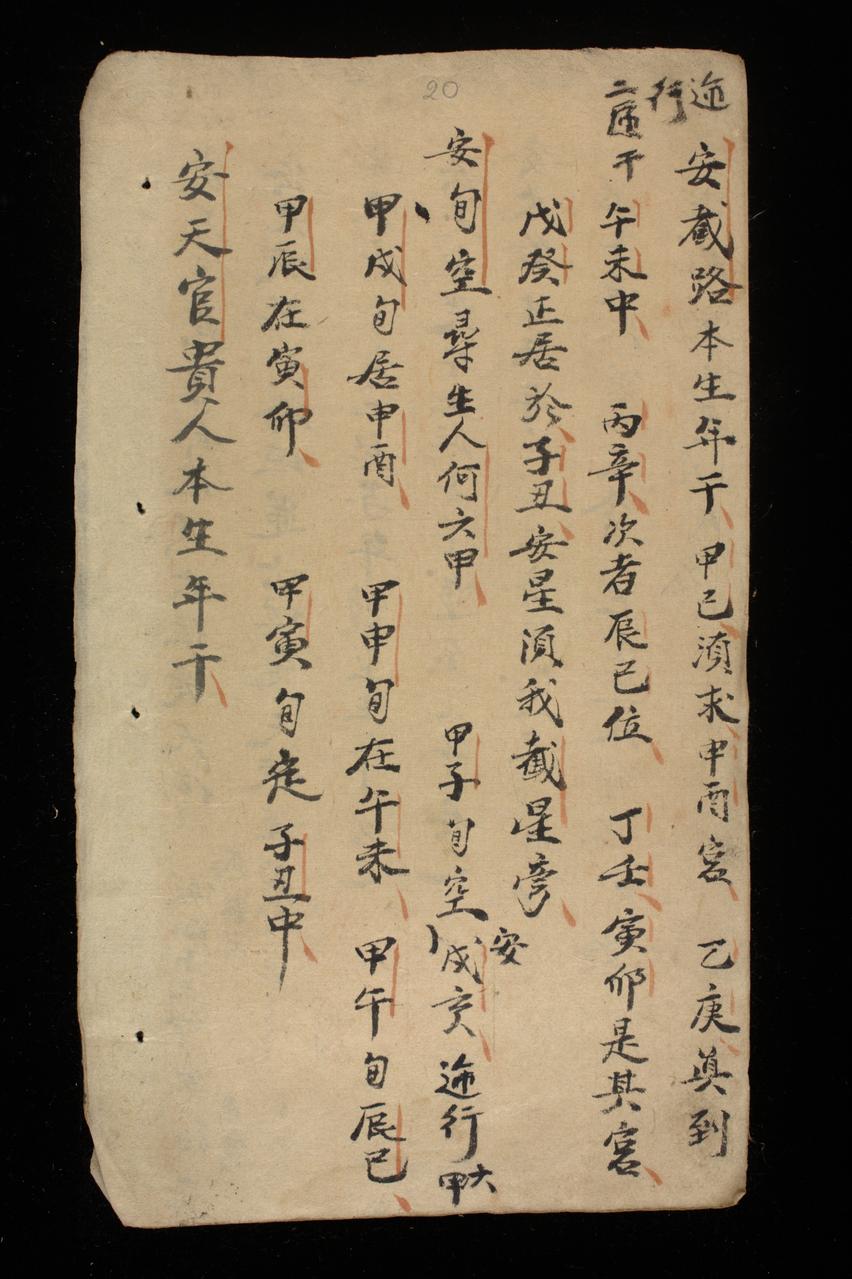 行
安截路本生年干 甲己須求申酉宮 乙庚莫到
二 干
午未中 丙辛次者辰巳位 丁壬寅卯是其宮
戊癸正居於子丑安星須我截星旁
安旬空尋生人何六甲 甲子旬空戌亥 行 六甲
安
甲戌旬居申酉 甲申旬在午未 甲午旬辰巳
甲辰在寅卯 甲寅旬定子丑中
安天官貴人本生年干
20